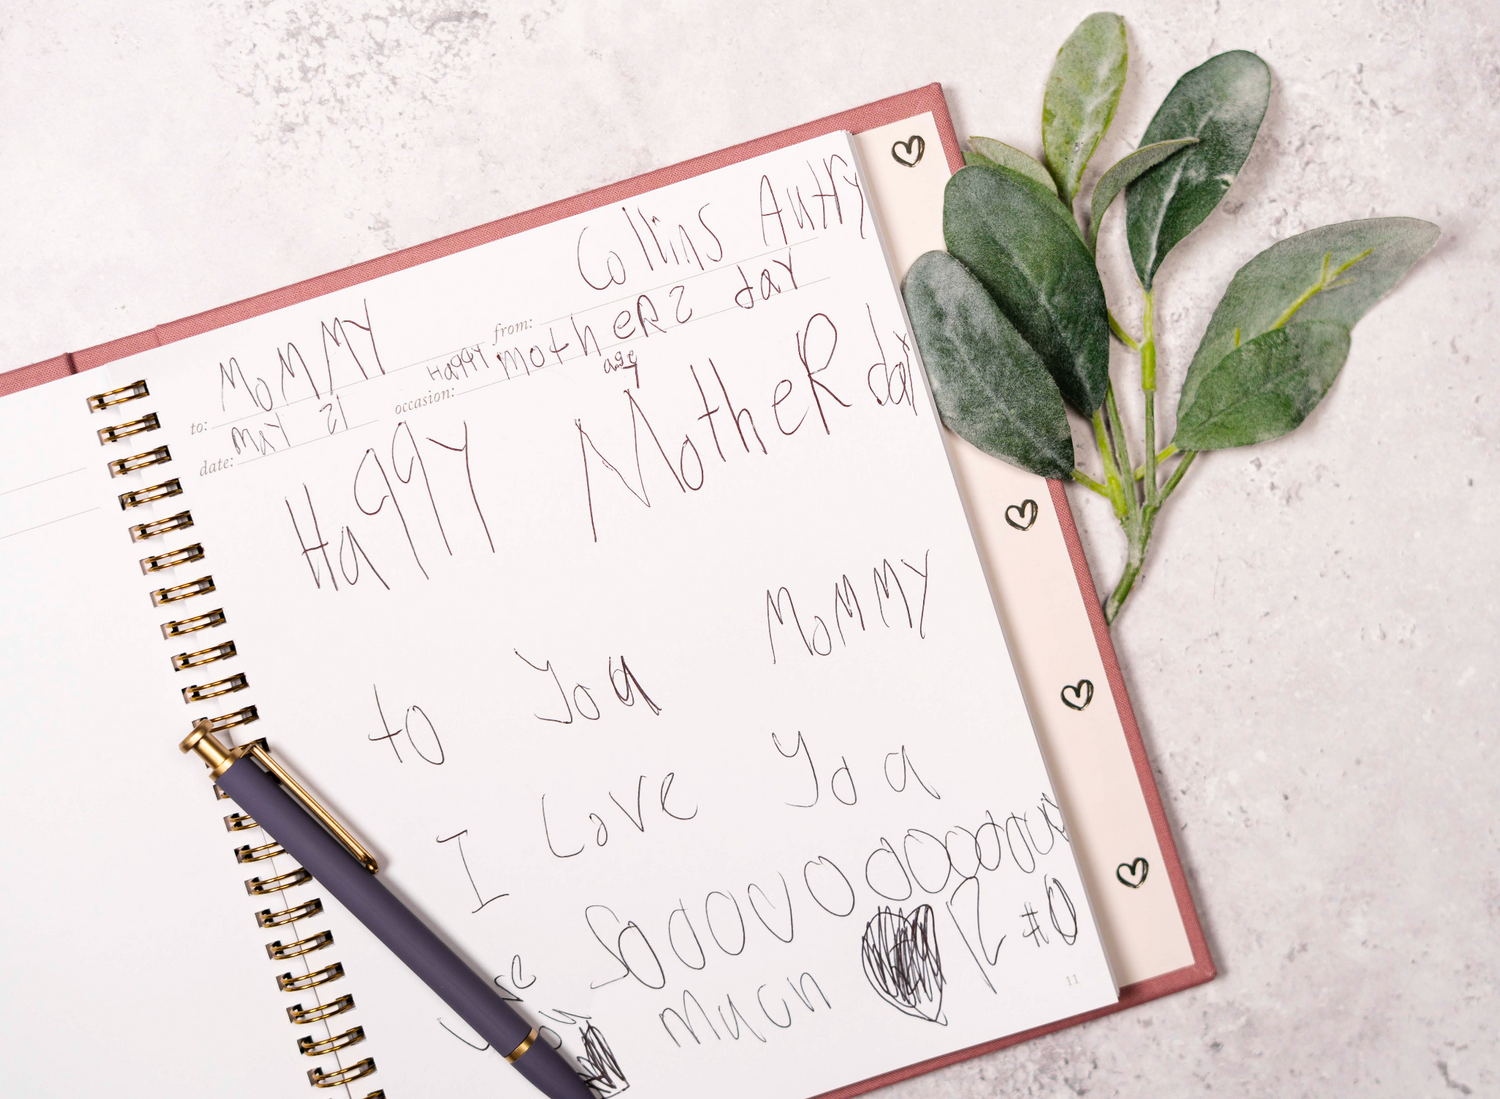 to: MoMMY from: Collins Autry
date: May 21 occasion: Haqqy motheRs day
age
Haqqy MotheR day
to You MoMMY
I Love You
Soooooooooooo
much
11